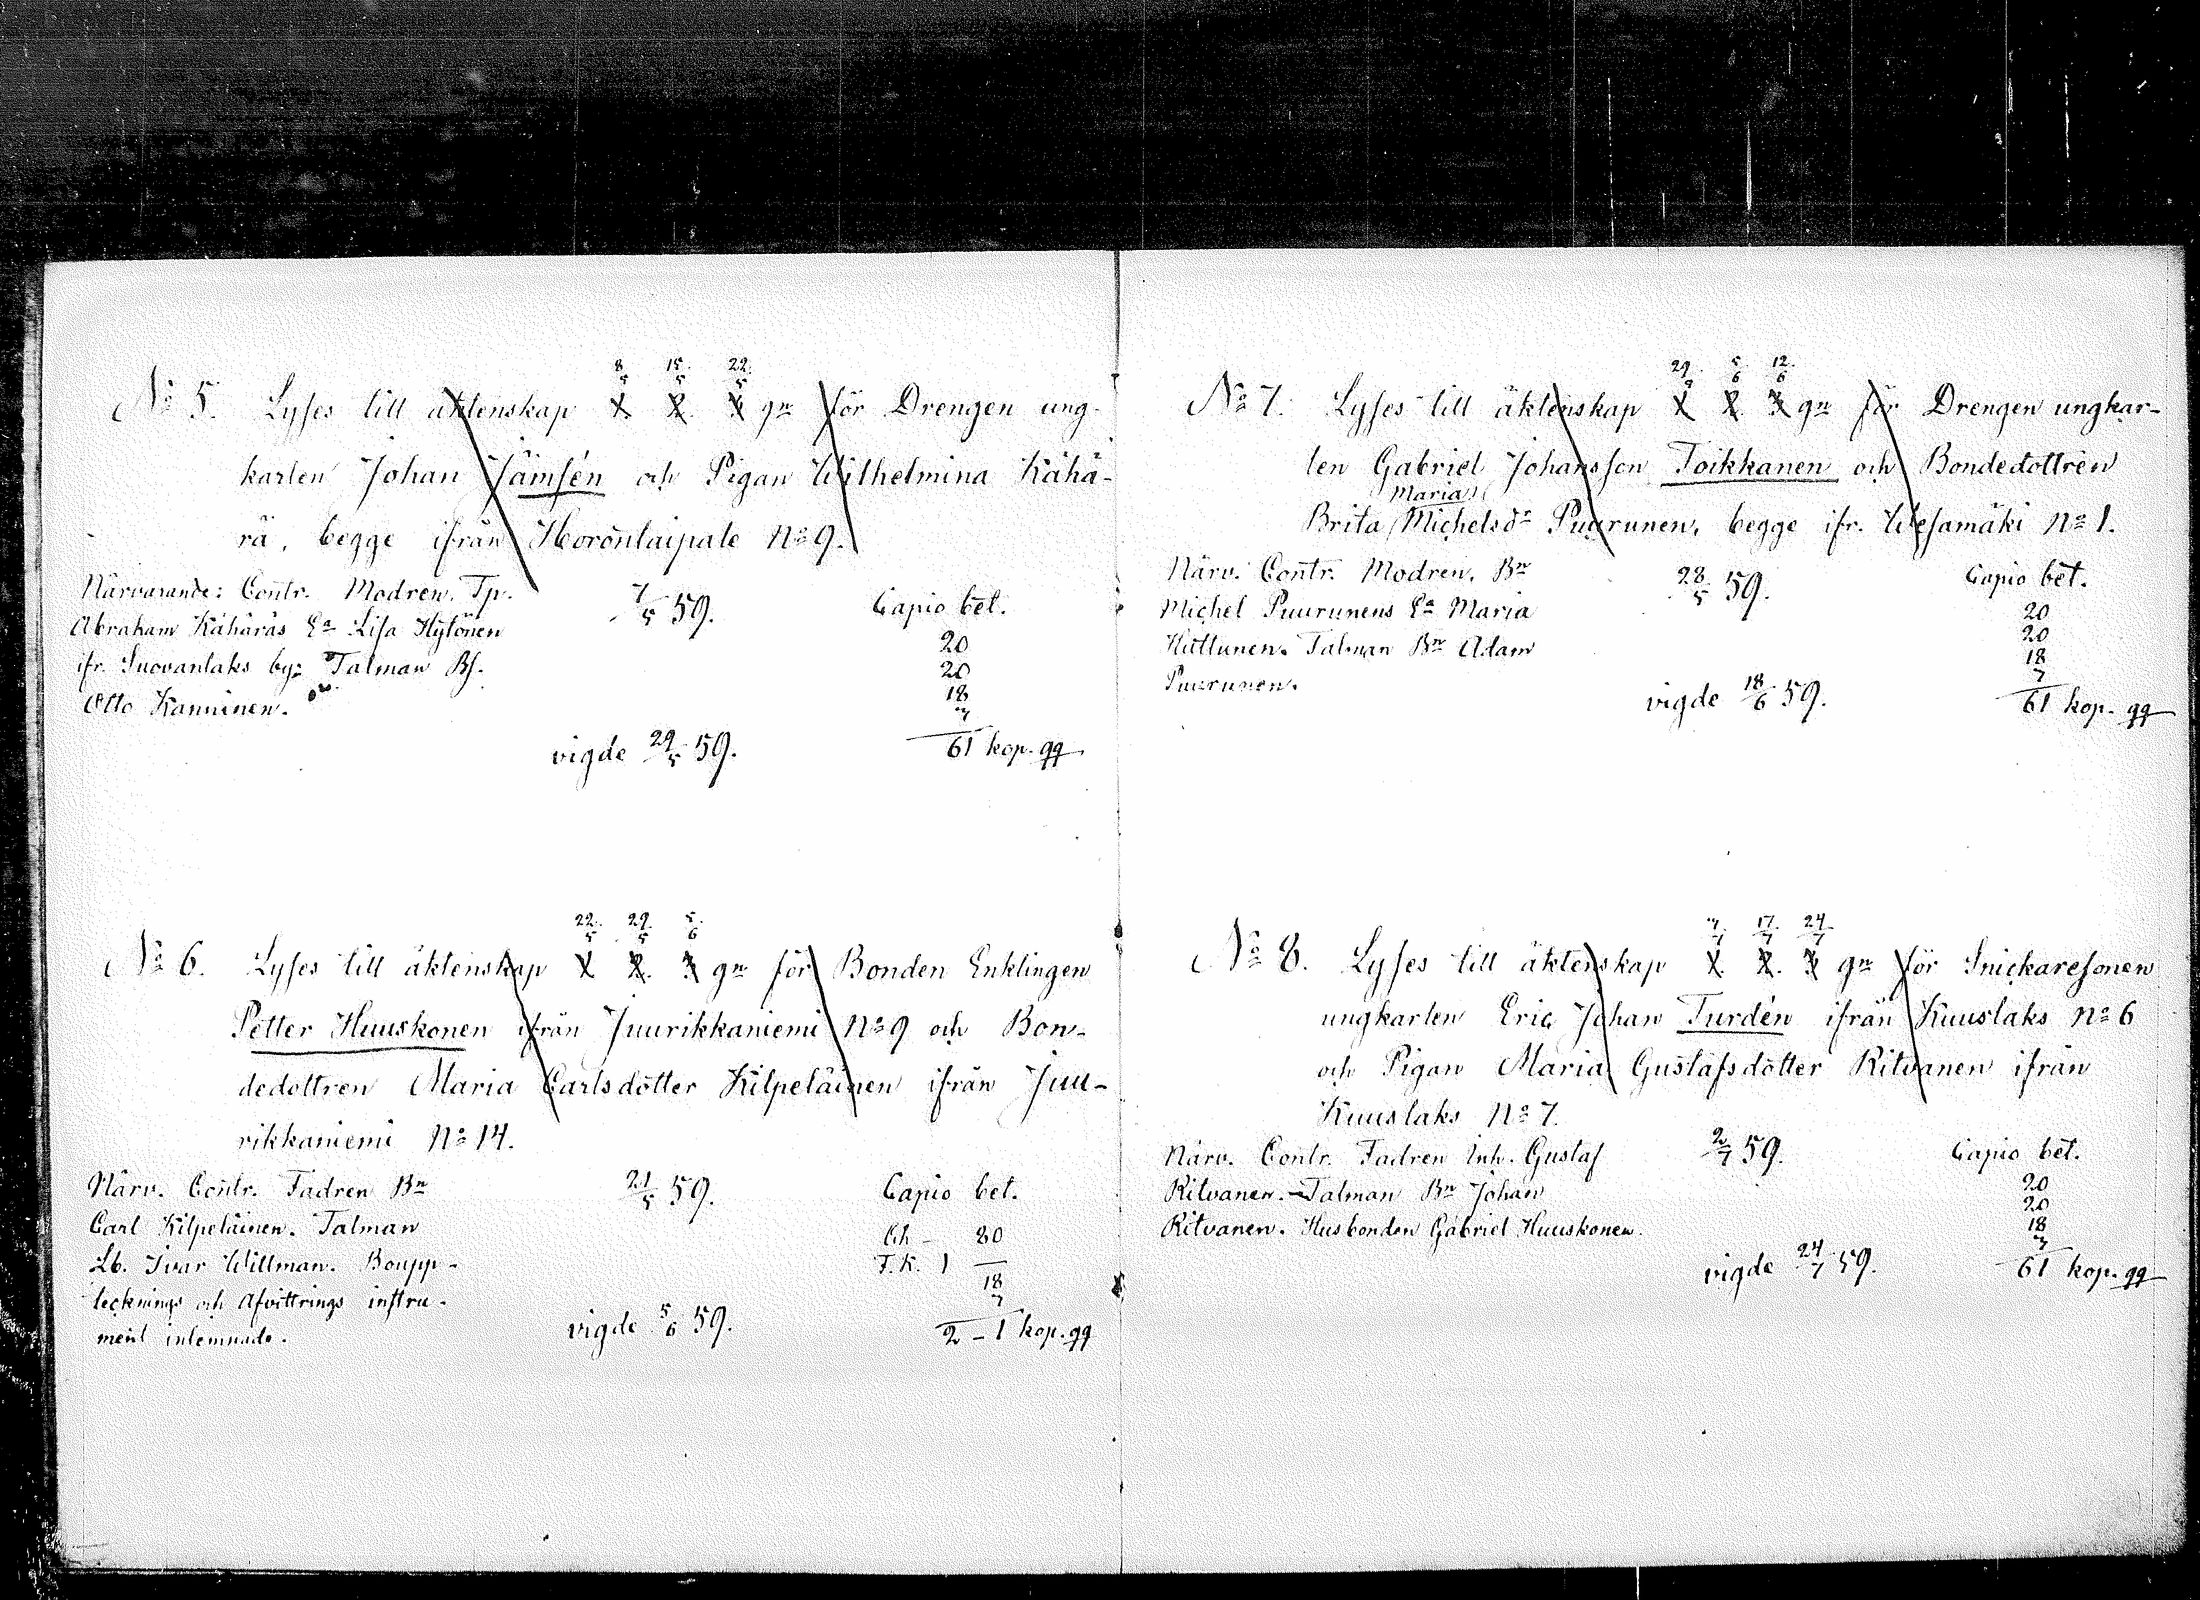 8/5 15/5 22/5
No 5. Lyses till äktenskap 1. 2. 3 gn för Drengen ung-
karlen Johan Jämsén och Pigan Wilhelmina Kähä-
rä, begge ifrån Horonlaipale No 9.
Närvarande: Contr. Modren, Tp.
Abraham Kähäräs Ea Lisa Hytönen
ifr. Suovanlaks by: Talman Bs.
Otto Kanninen.
7/5 59.
Capio bet.
20
20
18
3
61 kop. gg
vigde 29/5 59.
22/5 29/5 5/6
No 6. Lyses till äktenskap 1 2. 3 gn för Bonden Enklingen
Petter Huuskonen ifrån Juurikkaniemi No 9 och Bon-
dedottren Maria Carlsdotter Kilpeläinen ifrån Juu-
rikkaniemi No 14.
Närv. Contr. Fadren Bn
Carl Kilpeläinen. Talman
Lb. Ivar Wittman. Boupp-
tecknings och Afvittrings instru-
ment inlemnade.
21/5 59.
Capio bet.
Ch - 80
F.K. 1 —
18
3
2 - 1 kop. gg
vigde 5/6 59.
29/5 5/6 12/6
No 7. Lyses till äktenskap 1 2. 3 gn för Drengen ungkar-
len Gabriel Johansson Toikkanen och Bondedottren
Maria
Brita Michelsdr Puurunen, begge ifr. Wesamäki No 1.
Närv. Contr. Modren, Bn
Michel Puurunens Ea Maria
Huttunen. Talman Bn Adam
Puurunen.
28/5 59.
Capio bet.
20
20
18
3
61 kop. gg
vigde 18/6 59.
17/7 24/7
No 8. Lyses till äktenskap 1. 2. 3 gn för Snickaresonen
ungkarlen Eric Johan Turdén ifrån Kuuslaks No 6
och Pigan Maria Gustafsdotter Ritvanen ifrån
Kuuslaks No 7.
Närv. Contr. Fadren Inh. Gustaf
Ritvanen. - Talman Bn Johan
Ritvanen. Husbonden Gabriel Huuskonen.
2/7 59.
Capio bet.
20
20
18
3
61 kop. gg
vigde 24/7 59.